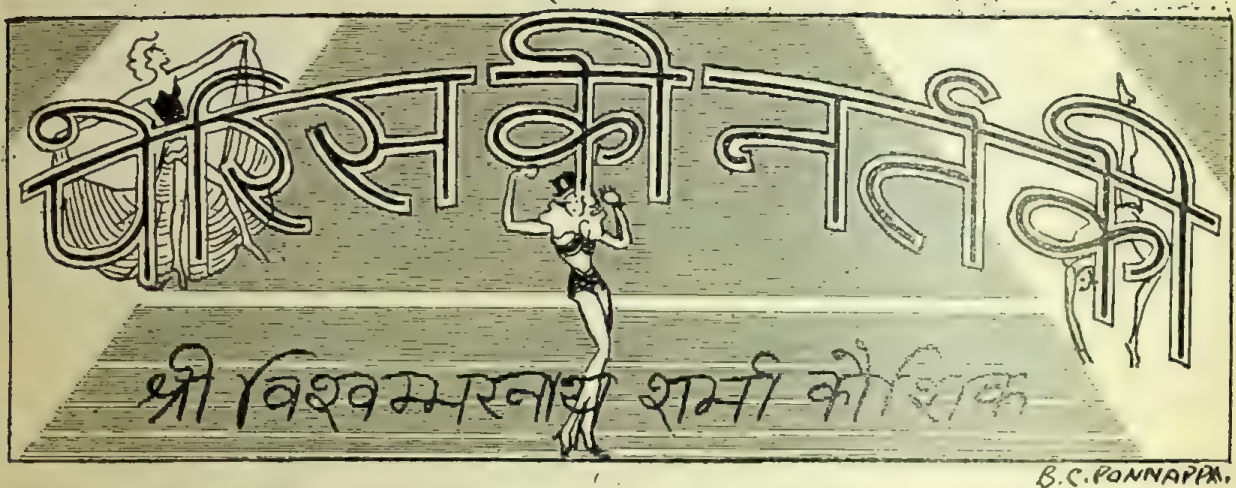 पेरिस की नर्तकी
श्री विश्वम्भरनाथ शर्मा कौशिक
B.C. PONNAPPA.